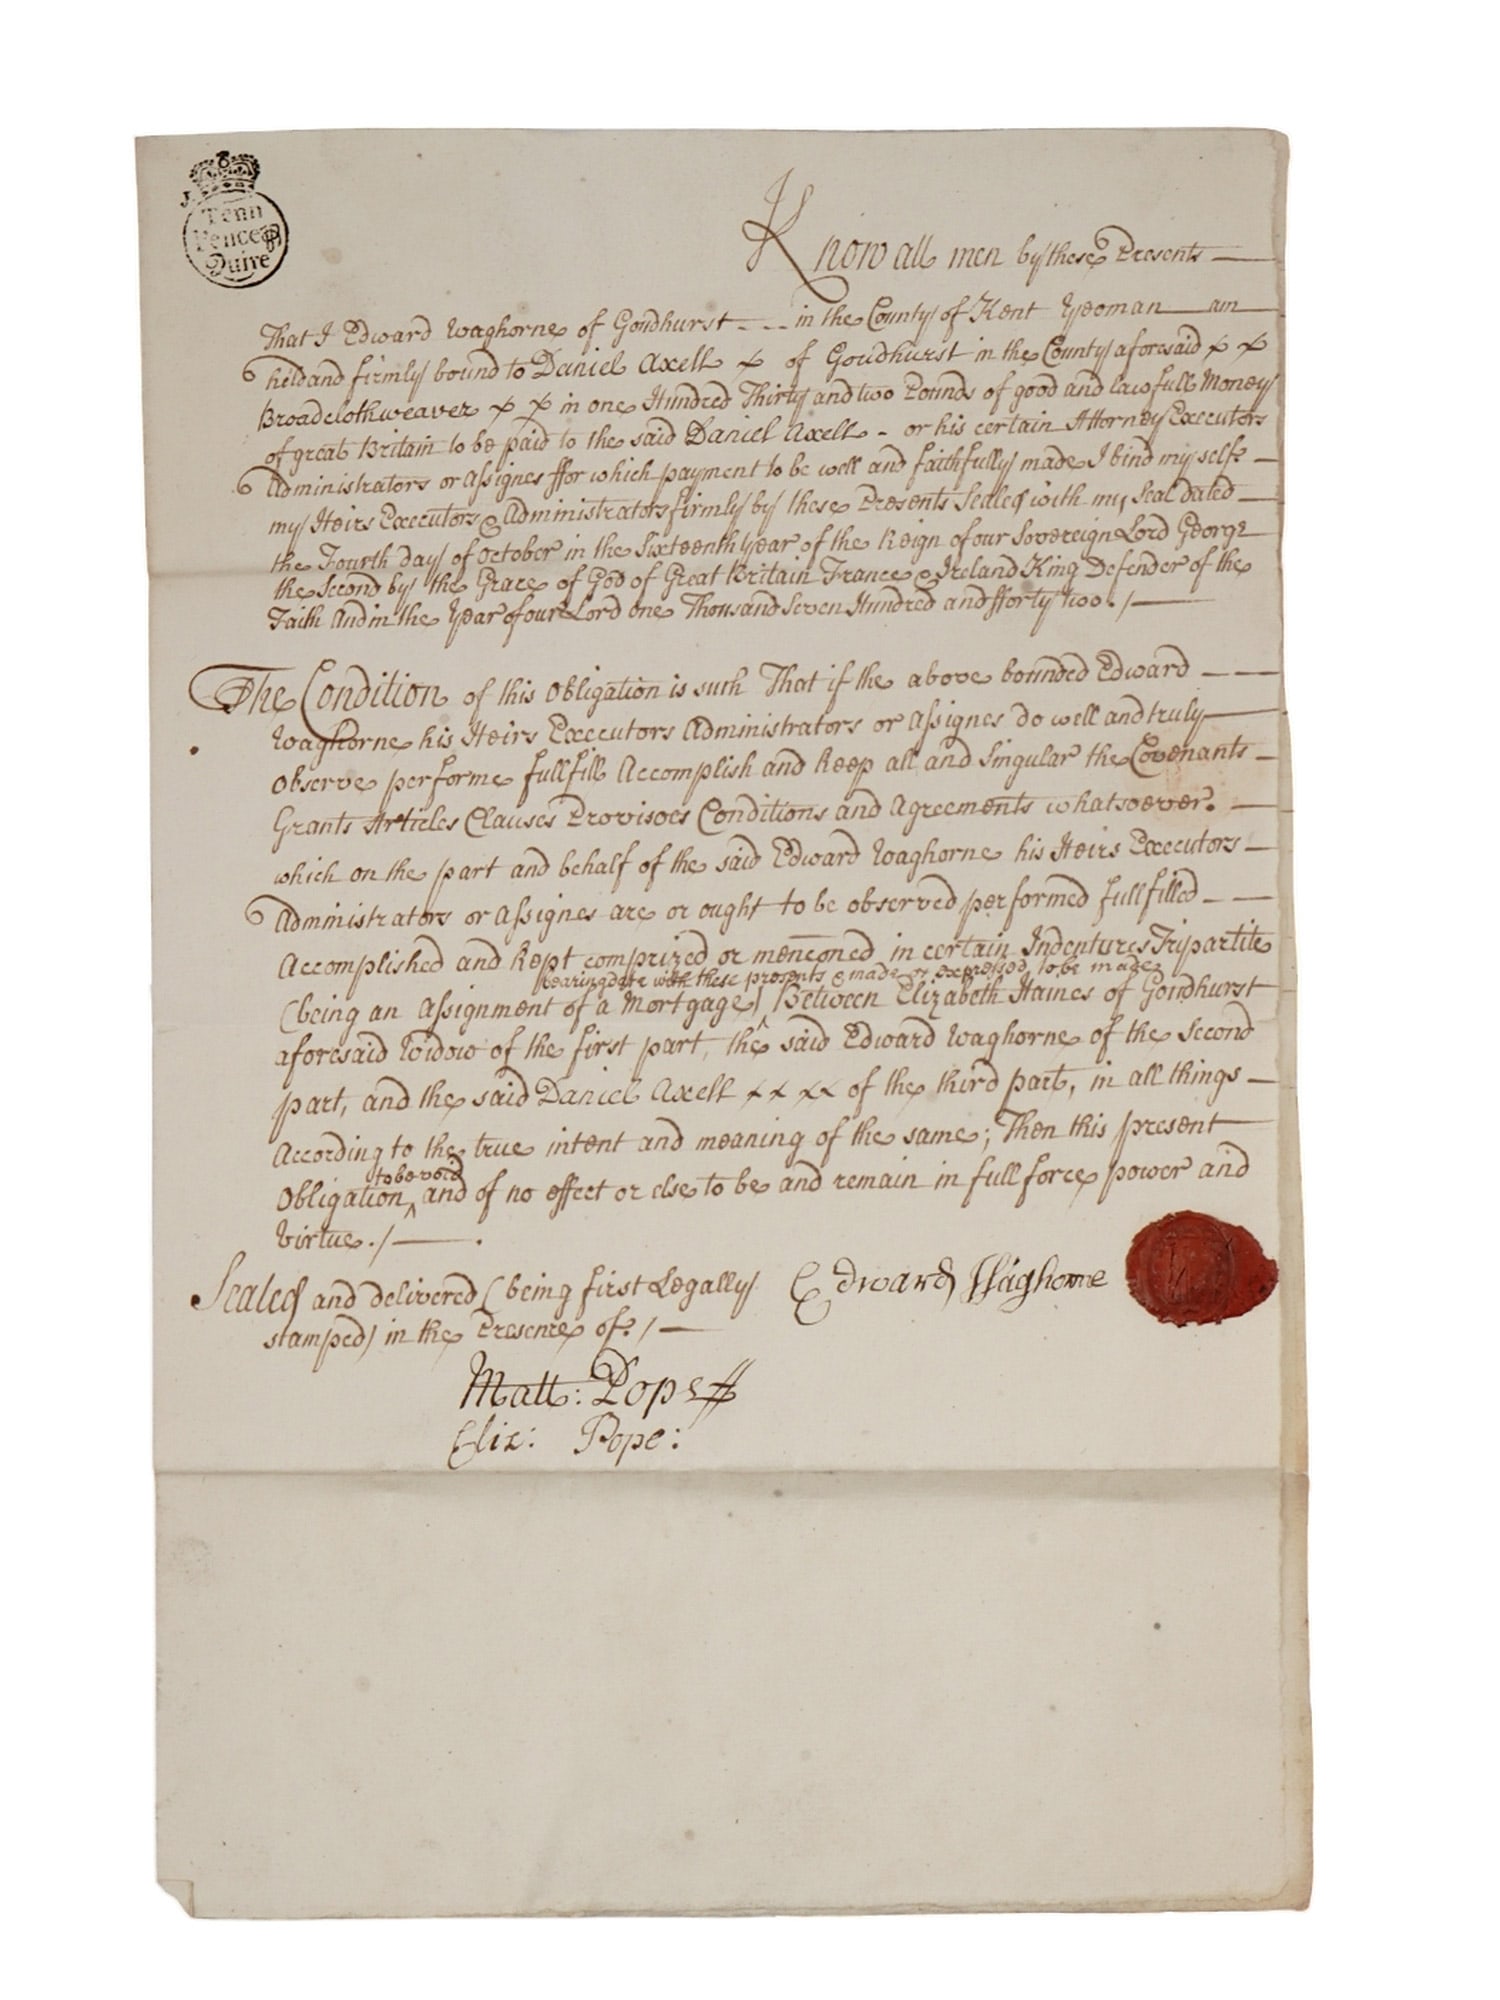 Tenn
Pence p
Quire
Know all men by these Presents
That I Edward Waghorne of Goudhurst in the County of Kent Yeoman am
held and firmly bound to Daniel Axell x of Goudhurst in the County aforesaid x x
Broadclothweaver x x in one Hundred Thirty and two Pounds of good and lawfull Money
of great Britain to be paid to the said Daniel Axell - or his certain Attorney Executors
Administrators or Assignes ffor which payment to be well and faithfully made I bind my selfe
my Heirs Executors & Administrators firmly by these Presents Sealed with my Seal dated
the Fourth day of October in the Sixteenth Year of the Reign of our Sovereign Lord George
the Second by the Grace of God of Great Britain France & Ireland King Defender of the
Faith And in the Year of our Lord one Thousand Seven Hundred and fforty two ./
The Condition of this Obligation is such That if the above bounded Edward
Waghorne his Heirs Executors Administrators or Assignes do well and truly
Observe performe fullfill Accomplish and keep all and Singular the Covenants
Grants Articles Clauses Provisoes Conditions and Agreements whatsoever.
which on the part and behalf of the said Edward Waghorne his Heirs Executors
Administrators or Assignes are or ought to be observed performed fullfilled
Accomplished and kept comprized or menconed in certain Indentures Tripartite
bearing date with these presents & made or expressed to be made
(being an Assignment of a Mortgage) ^ Between Elizabeth Haines of Goudhurst
aforesaid Widow of the first part, the said Edward Waghorne of the Second
part, and the said Daniel Axell x x x x of the third part, in all things
According to the true intent and meaning of the same; Then this present
to be void
Obligation ^ and of no effect or else to be and remain in full force power and
Virtue ./
Sealed and delivered (being first Legally
stamped) in the Presence of. /
Edward Waghorne
Matt: Pope
Eliz: Pope: